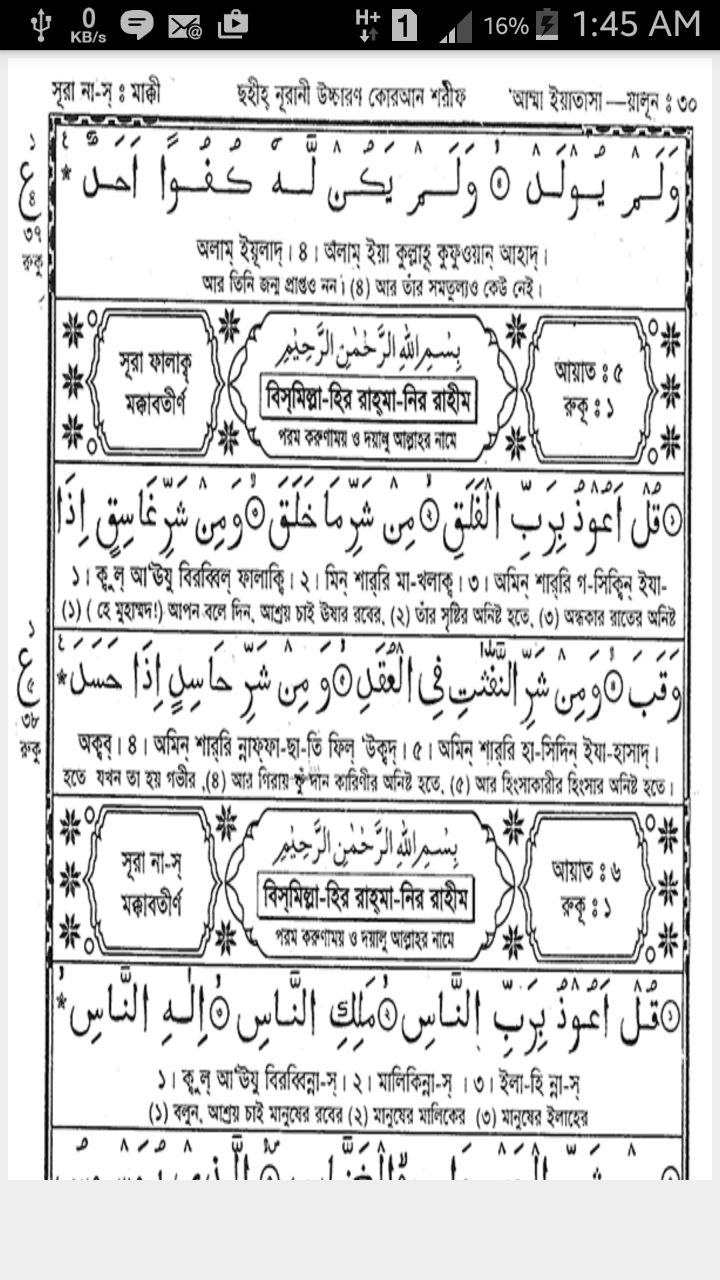 0 KB/s H+ 1 16% 1:45 AM
সূরা না-স্ : মাক্কী ছহীহ্ নূরানী উচ্চারণ কোরআন শরীফ 'আম্মা ইয়াতাসা—য়ালূন : ৩০
وَلَمْ يُوْلَدْ ۙ﴿٣﴾ وَلَمْ يَكُنْ لَّهٗ كُفُوًا اَحَدٌ
১
ع
৪
৩৭
রুকু
অলাম্ ইয়ূলাদ্। ৪। অলাম্ ইয়া কুল্লাহূ কুফুওয়ান আহাদ্।
আর তিনি জন্ম প্রাপ্তও নন। (৪) আর তাঁর সমতুল্যও কেউ নেই।
সূরা ফালাক্ব
মক্কাবতীর্ণ
بِسْمِ اللهِ الرَّحْمٰنِ الرَّحِيْمِ
বিস্‌মিল্লা-হির রাহ্‌মা-নির রাহীম
পরম করুণাময় ও দয়ালু আল্লাহর নামে
আয়াত : ৫
রুকূ : ১
قُلْ اَعُوْذُ بِرَبِّ الْفَلَقِ ﴿٢﴾ مِنْ شَرِّ مَا خَلَقَ ﴿٣﴾ وَمِنْ شَرِّ غَاسِقٍ اِذَا
১। ক্বুল্ আ'ঊযু বিরব্বিল্ ফালাক্বি। ২। মিন্ শার্‌রি মা-খলাক্ব। ৩। অমিন্ শার্‌রি গ-সিক্বিন্ ইযা-
(১) ( হে মুহাম্মদ!) আপন বলে দিন, আশ্রয় চাই ঊষার রবের, (২) তাঁর সৃষ্টির অনিষ্ট হতে, (৩) অন্ধকার রাতের অনিষ্ট
وَقَبَ ﴿٤﴾ وَمِنْ شَرِّ النَّفّٰثٰتِ فِى الْعُقَدِ ﴿٥﴾ وَمِنْ شَرِّ حَاسِدٍ اِذَا حَسَدَ
১
ع
৫
৩৮
রুকু
অকুব্। ৪। অমিন শার্‌রি ন্নাফ্‌ফা-ছা-তি ফিল্ 'উক্বদ্। ৫। অমিন্ শার্‌রি হা-সিদিন ইযা-হাসাদ্।
হতে যখন তা হয় গভীর ,(৪) আর গিরায় ফুঁ দান কারিণীর অনিষ্ট হতে, (৫) আর হিংসাকারীর হিংসার অনিষ্ট হতে।
সূরা না-স্
মক্কাবতীর্ণ
بِسْمِ اللهِ الرَّحْمٰنِ الرَّحِيْمِ
বিস্‌মিল্লা-হির রাহ্‌মা-নির রাহীম
পরম করুণাময় ও দয়ালু আল্লাহর নামে
আয়াত : ৬
রুকূ : ১
قُلْ اَعُوْذُ بِرَبِّ النَّاسِ ﴿٢﴾ مَلِكِ النَّاسِ ﴿٣﴾ اِلٰهِ النَّاسِ
১। ক্বুল্ আ'ঊযু বিরব্বিন্না-স্। ২। মালিকিন্না-স্ । ৩। ইলা-হি ন্না-স্
(১) বলুন, আশ্রয় চাই মানুষের রবের (২) মানুষের মালিকের (৩) মানুষের ইলাহের